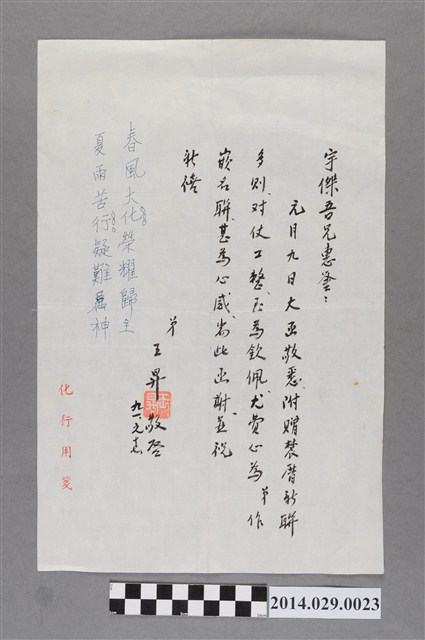 宇傑吾兄惠鑒：
元月九日大函敬悉附贈農曆新聯
多則对仗工整至為欽佩尤費心為弟作
嵌名聯甚為心感耑此函謝並祝
新禧
弟
王昇敬啓
九一元
春風大化榮耀歸主
夏雨苦行疑難屬神
化行用箋
2014.029.0023